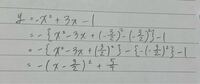 y = -x² + 3x - 1
= -{x² - 3x + (3/2)² - (3/2)²} - 1
= -{x² - 3x + (3/2)²} - {-(-3/2)²} - 1
= -(x - 3/2)² + 5/4